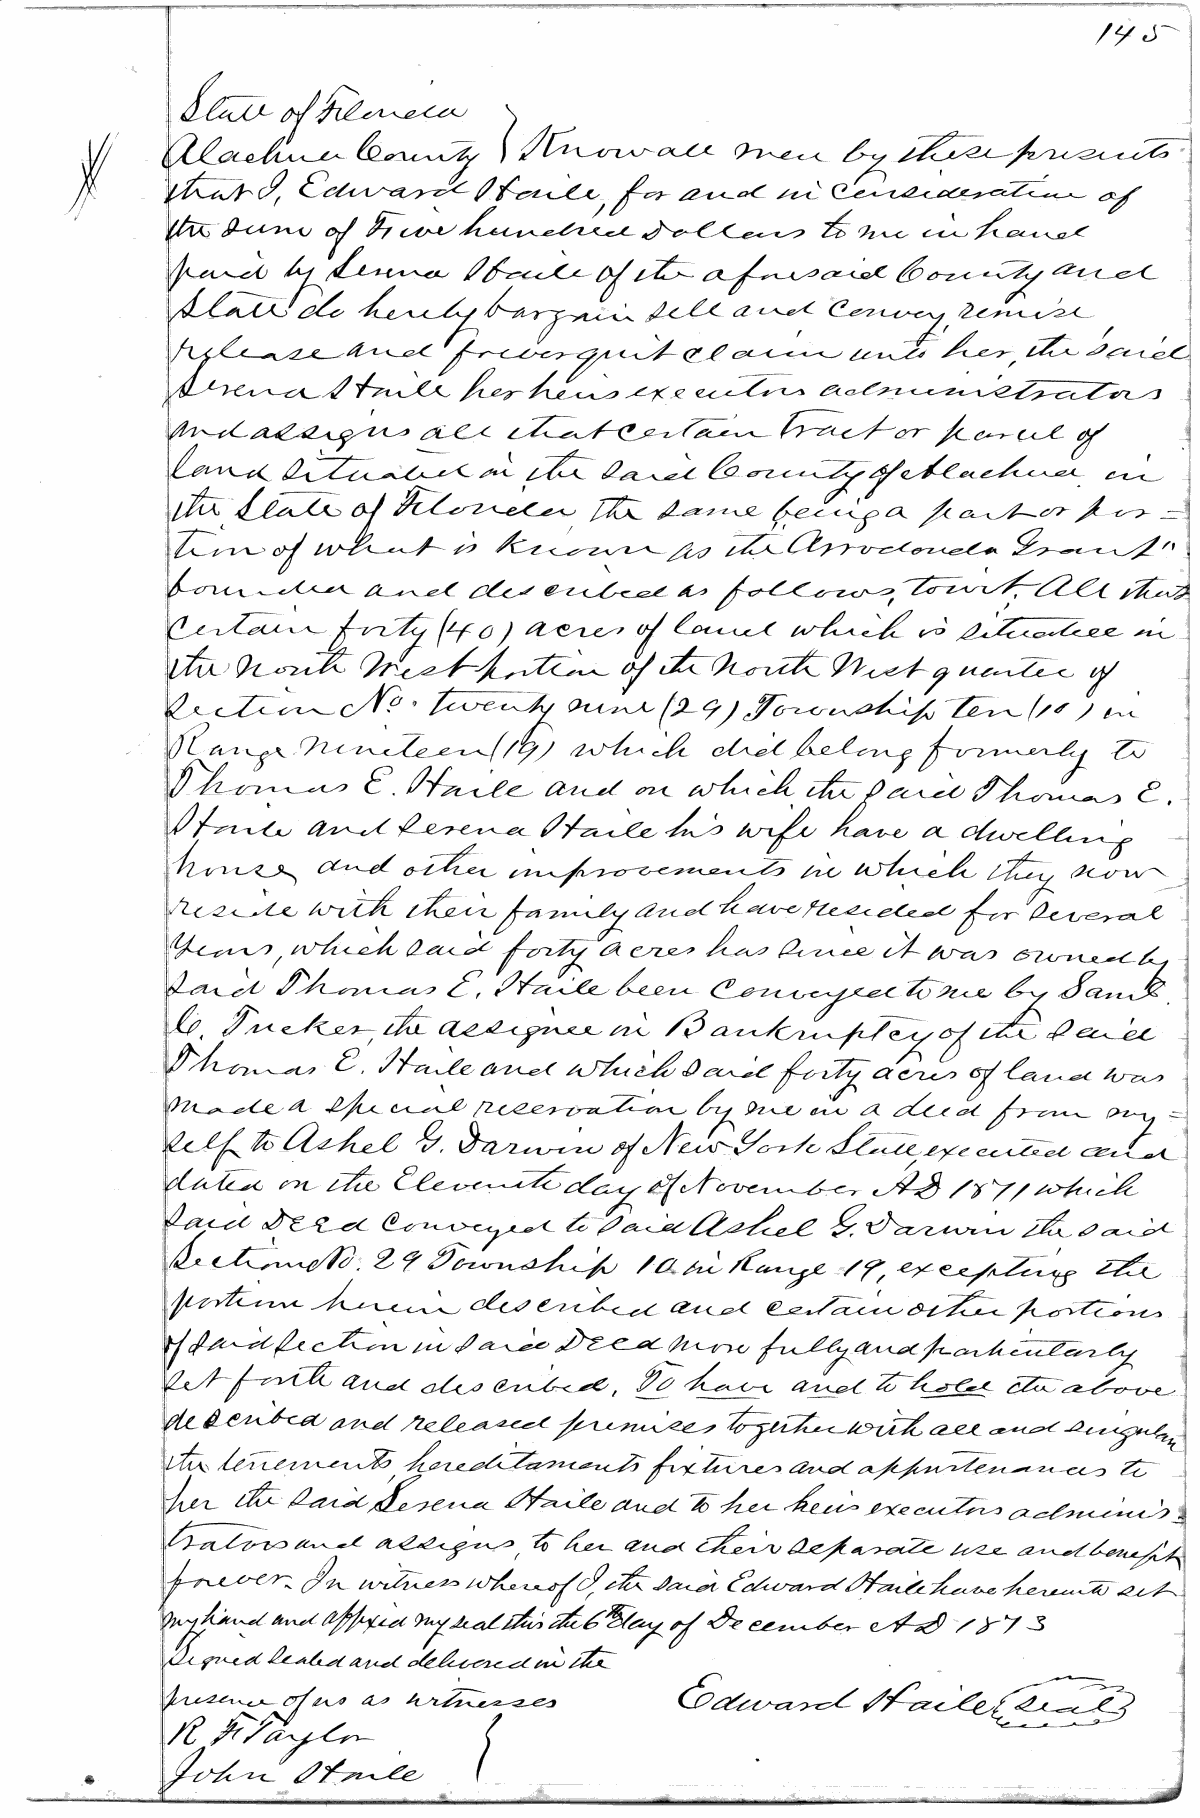 145
State of Florida
Alachua County } Know all men by these presents
that I, Edward Haile, for and in Consideration of
the sum of Five hundred Dollars to me in hand
paid by Serena Haile of the aforesaid County and
State do hereby bargain sell and convey, remise,
release and forever quit claim unto her, the said
Serena Haile her heirs executors administrators
and assigns all that certain Tract or parcel of
land situated in the said County of Alachua in
the State of Florida the same being a part or por=
tion of what is known as the "Arrodondo Grant"
bounded and described as follows, towit, All that
certain forty (40) acres of land which is situated in
the North West portion of the North West quarter of
Section No. twenty nine (29) Township Ten (10) in
Range Nineteen (19) which did belong formerly to
Thomas E. Haile and on which the said Thomas E.
Haile and Serena Haile his wife have a dwelling
house and other improvements in which they now
reside with their family and have resided for several
years, which said forty acres has since it was owned by
said Thomas E. Haile been conveyed to me by Saml.
C. Tucker, the assignee in Bankruptcy of the said
Thomas E. Haile and which said forty acres of land was
made a special reservation by me in a deed from my=
self to Ashel G. Darwin of New York State, executed and
dated on the Eleventh day of November AD 1871 which
said Deed conveyed to said Ashel G. Darwin the said
Section No. 29 Township 10 in Range 19, excepting the
portion herein described and certain other portions
of said Section in said Deed more fully and particularly
set forth and described. To have and to hold the above
described and released premises together with all and singular
the tenements hereditaments fixtures and appurtenances to
her the said Serena Haile and to her heirs executors adminis=
trators and assigns, to her and their separate use and benefit
forever. In witness whereof I, the said Edward Haile have hereunto set
my hand and affixed my seal this the 6th day of December AD 1873
Signed Sealed and delivered in the
presence of us as witnesses
Edward Haile (seal)
R F Taylor
John Haile